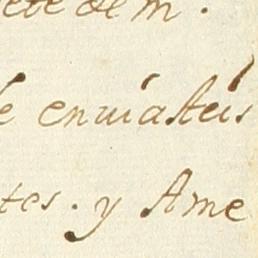 de m.
enuiasteis
tes. y Ame